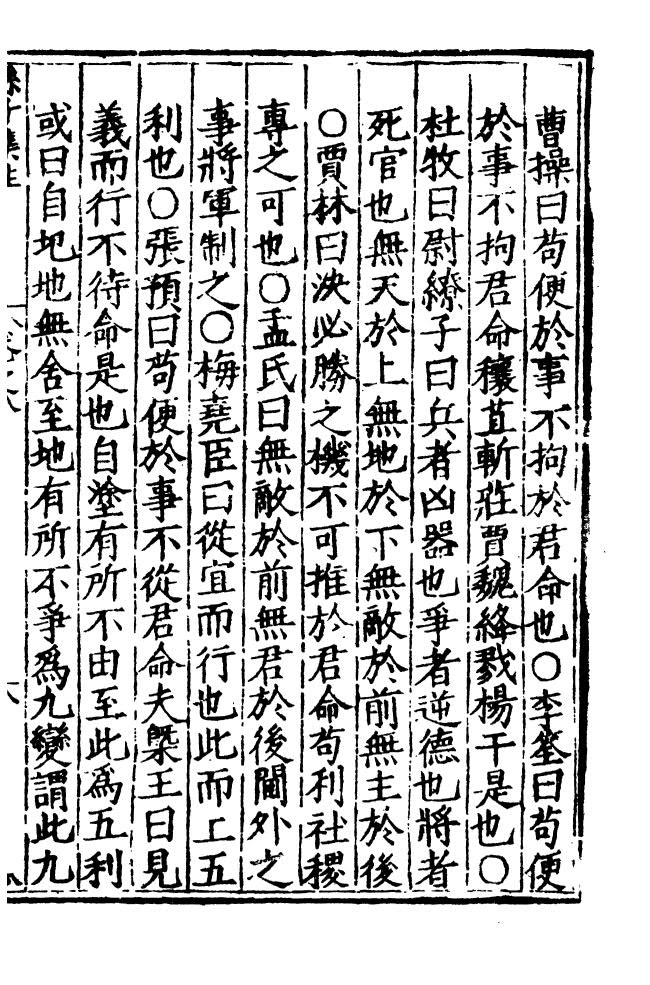 曹操曰苟便於事不拘於君命也○李筌曰苟便
於事不拘君命穰苴斬莊賈魏絳戮楊干是也○
杜牧曰尉繚子曰兵者凶器也爭者逆德也將者
死官也無天於上無地於下無敵於前無主於後
○賈林曰決必勝之機不可推於君命苟利社稷
專之可也○孟氏曰無敵於前無君於後閫外之
事將軍制之○梅堯臣曰從宜而行也此而上五
利也○張預曰苟便於事不從君命夫槩王曰見
義而行不待命是也自塗有所不由至此爲五利
或曰自圮地無舍至地有所不爭爲九變謂此九